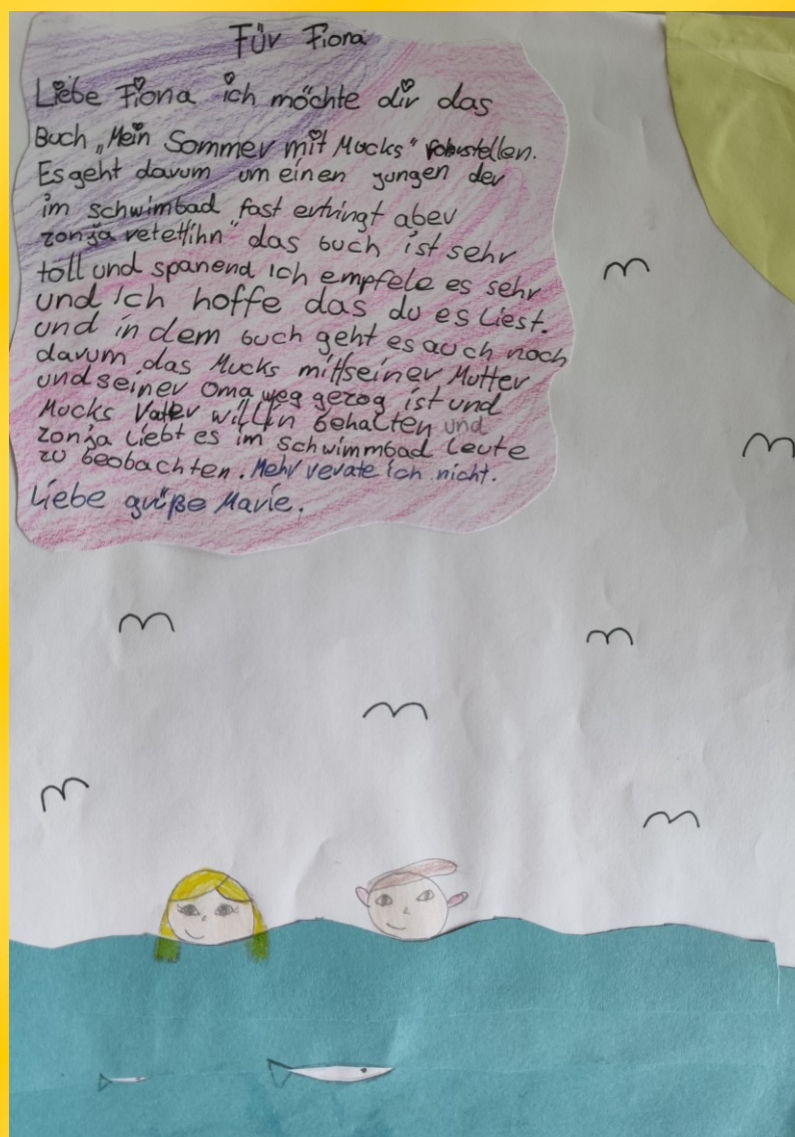 Für Fiona
Liebe Fiona ich möchte dir das
Buch „Mein Sommer mit Mucks"
Es geht darum um einen jungen der
im schwimbad fast ertringt aber
zonja retettihn" das buch ist sehr
toll und spanend ich empfele es sehr
und Ich hoffe das du es Liest.
und in dem buch geht es auch noch
darum das Mucks mittseiner Mutter
und seiner Oma weg gezog ist und
Mucks Vater will in behalten und
zonja Liebt es im schwimmbad leute
zu beobachten. Mehr verate ich nicht.
Liebe grüße Marie.